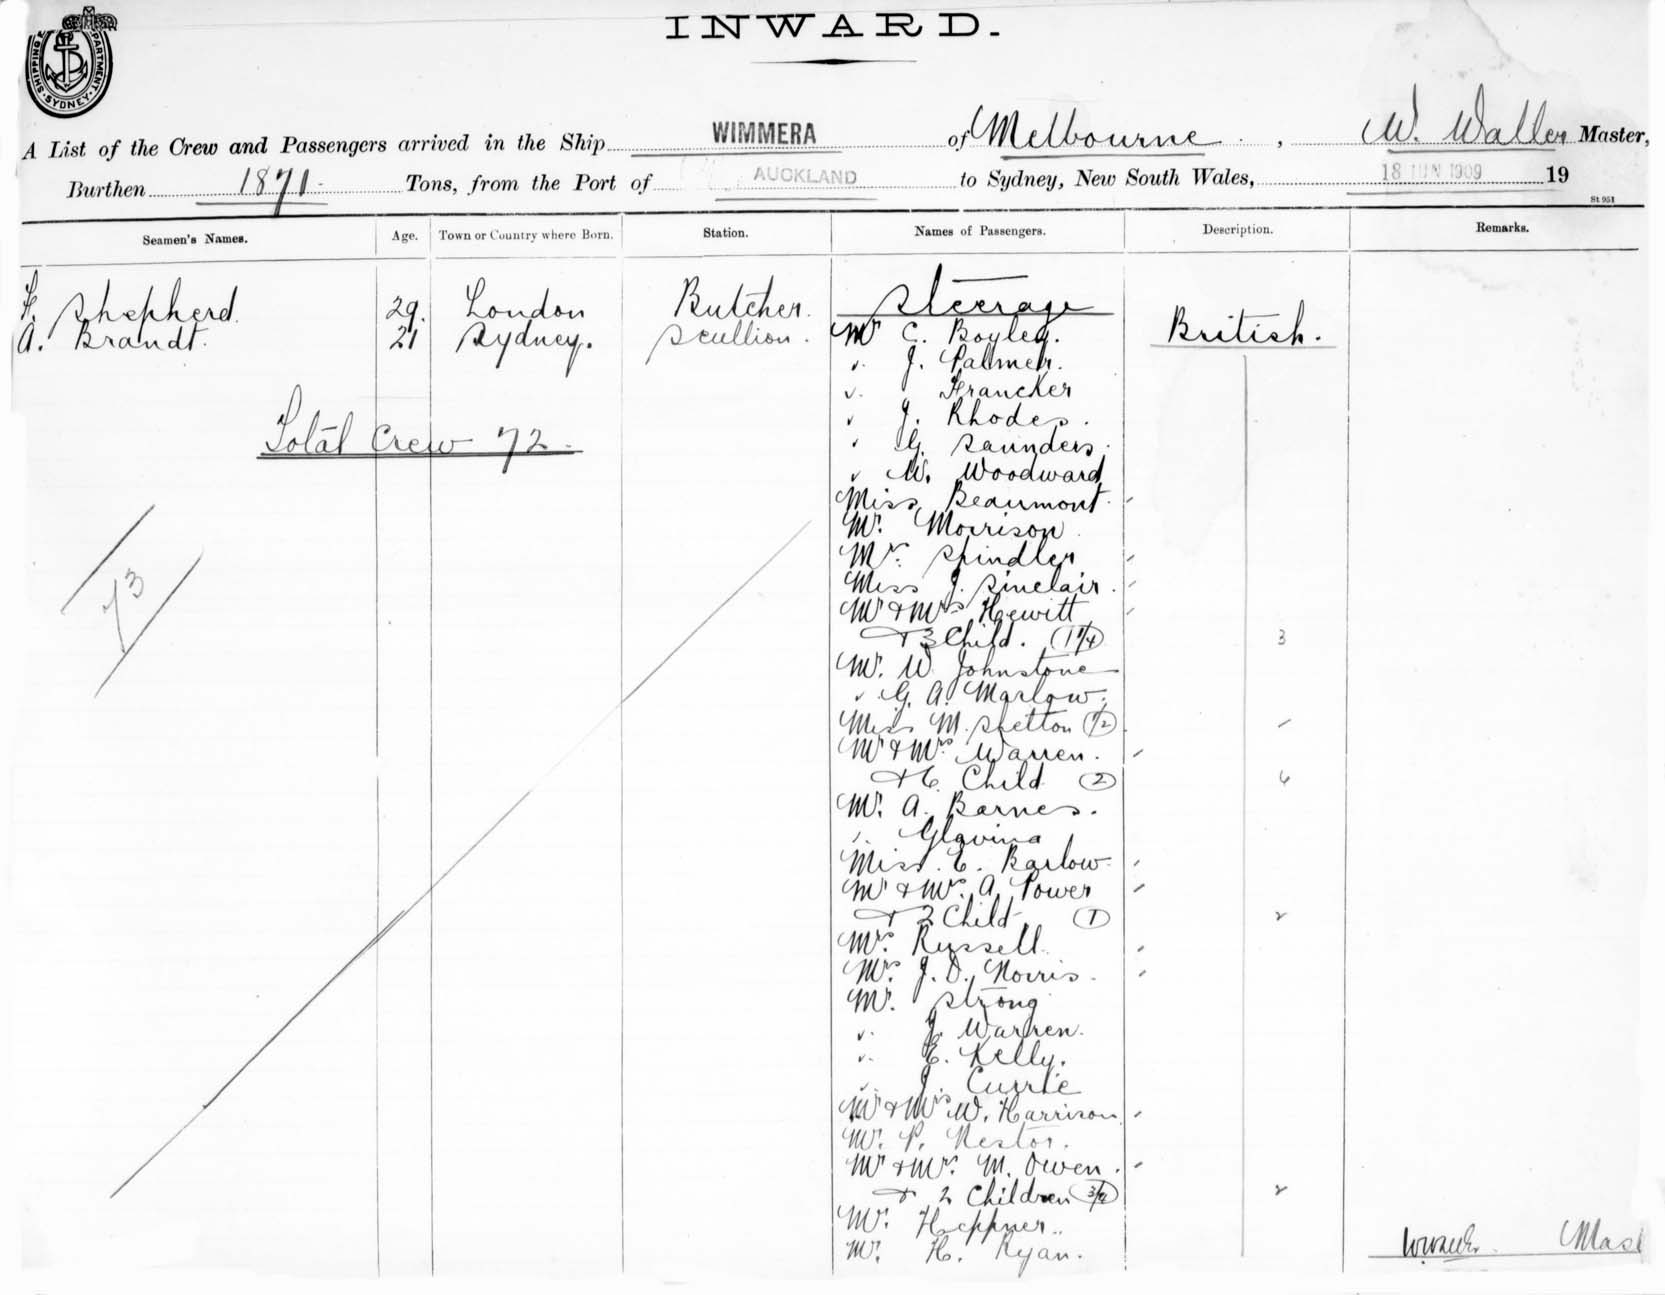 INWARD.
SHIPPING DEPARTMENT SYDNEY
A List of the Crew and Passengers arrived in the Ship WIMMERA of Melbourne, W. Waller Master,
Burthen 1871 Tons, from the Port of AUCKLAND to Sydney, New South Wales, 18 JUN 1909 19
St 951
Seamen's Names. Age. Town or Country where Born. Station. Names of Passengers. Description. Remarks.
Steerage
F. Shepherd. 29. London Butcher.
A. Brandt. 21 Sydney. Scullion. Mr C. Boyley. British.
" J. Palmer.
" Francker
" J. Rhodes.
Total Crew 72
" G. Saunders.
" W. Woodward
Miss Beaumont.
Mr. Morrison
Mrs. Spindler
73
Miss J. Sinclair.
Mr & Mrs Hewitt
+ 3 Child. (1 1/4) 3
Mr. W. Johnstone
" G. A. Marlow.
Miss M. Shetton (1/2)
Mr & Mrs Warren.
+ 6 Child (2) 6
Mr. A. Barnes.
" Glavina
Miss. E. Barlow
Mr & Mrs. A. Power
+ 2 Child (1) 2
Mrs. Russell.
Mrs. J. D. Norris.
Mr. Strong
" J. Warren.
" E. Kelly.
" J. Currie
Mr & Mrs W. Harrison
Mr. P. Nestor.
Mr & Mrs. M. Owen.
+ 2 Children (3/4) 2
Mr. Heppner..
Mr. H. Ryan.
W. Waller. Mast